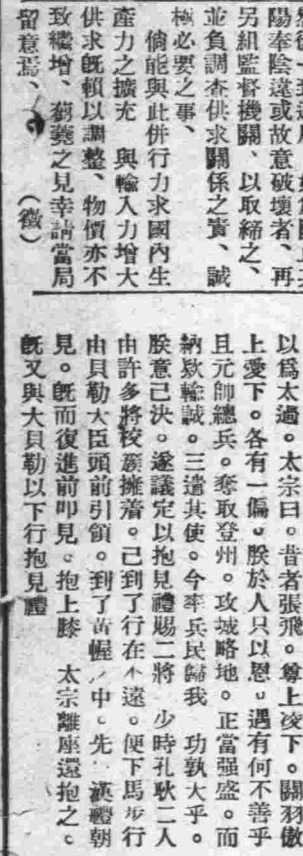 陽奉陰違或故意破壞者、再
另組監督機關、以取締之、
並負調查供求關係之責、誠
極必要之事、
倘能與此併行力求國內生
產力之擴充 與輸入力增大
供求既賴以調整、物價亦不
致繼增、芻蕘之見幸請當局
留意焉、 (徵)
以爲太過。太宗曰。昔者張飛。尊上凌下。關羽傲
上愛下。各有一偏。朕於人只以恩。遇有何不善乎
且元帥總兵。奪取登州。攻城略地。正當强盛。而
納欵輸誠。三遣其使。今率兵民歸我 功孰大乎。
朕意已決。遂議定以抱見禮賜二將 少時孔耿二人
由許多將校簇擁着。己到了行在不遠。便下馬步行
由貝勒大臣頭前引領。到了黃幄之中。先 漢禮朝
見。既而復進前叩見。抱上膝 太宗離座還抱之。
既又與大貝勒以下行抱見禮